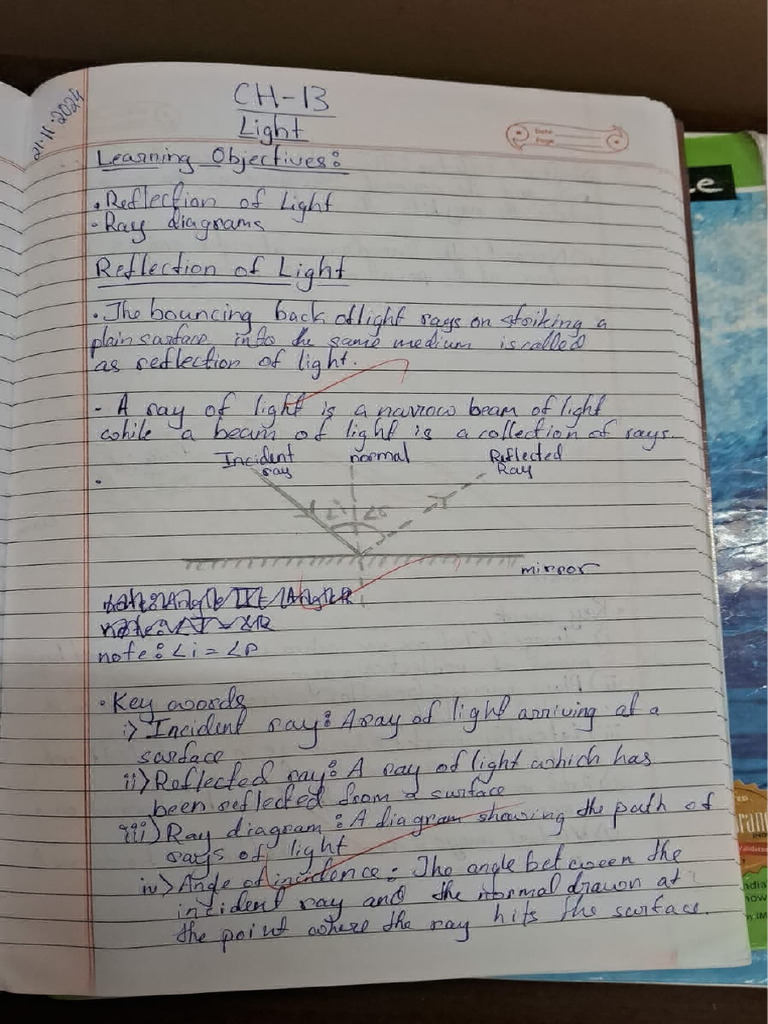 21.11.2024
CH-13
Light
Date
Page
Learning Objectives:
• Reflection of Light
• Ray diagrams
Reflection of Light
• The bouncing back of light rays on striking a
plain surface into the same medium is called
as reflection of light.
- A ray of light is a narrow beam of light
while a beam of light is a collection of rays.
Incident normal Reflected
ray Ray
•
∠i ∠r
mirror
note: ∠i = ∠r
• Key words
i) Incident ray: A ray of light arriving at a
surface
ii) Reflected ray: A ray of light which has
been reflected from a surface
iii) Ray diagram: A diagram showing the path of
rays of light
iv) Angle of incidence: The angle between the
incident ray and the normal drawn at
the point where the ray hits the surface.